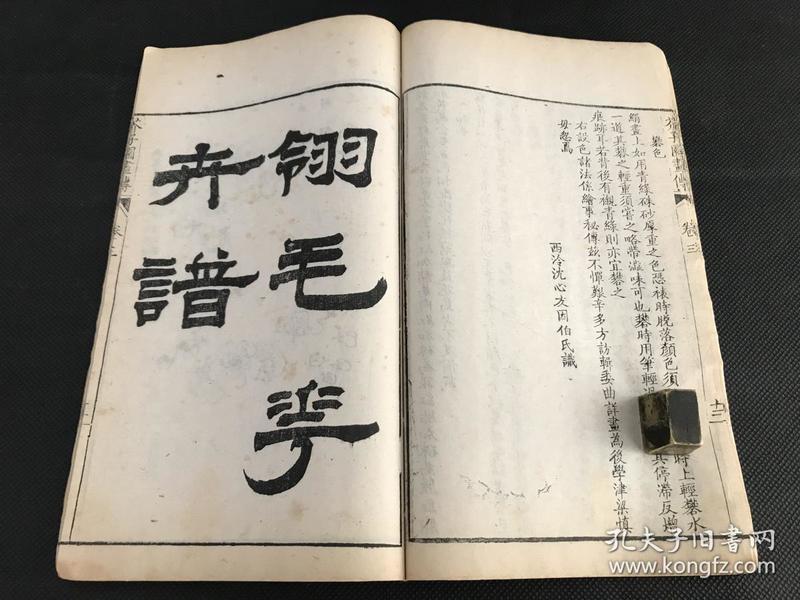 芥子園畫傳 卷三
礬色
絹畫上如用青綠硃砂厚重之色恐裱時脫落顏色須時上輕礬水
一道其礬之輕重須嘗之略帶澁味可也礬時用筆輕其停滯反增
痕跡耳若背後有襯青綠則亦宜礬之
右設色諸法係繪事秘傳茲不憚艱辛多方訪輯委曲詳盡為後學津梁慎
毋忽焉
西泠沈心友因伯氏識
翎毛花
卉譜
芥子園畫傳
孔夫子旧书网
kongfz.com